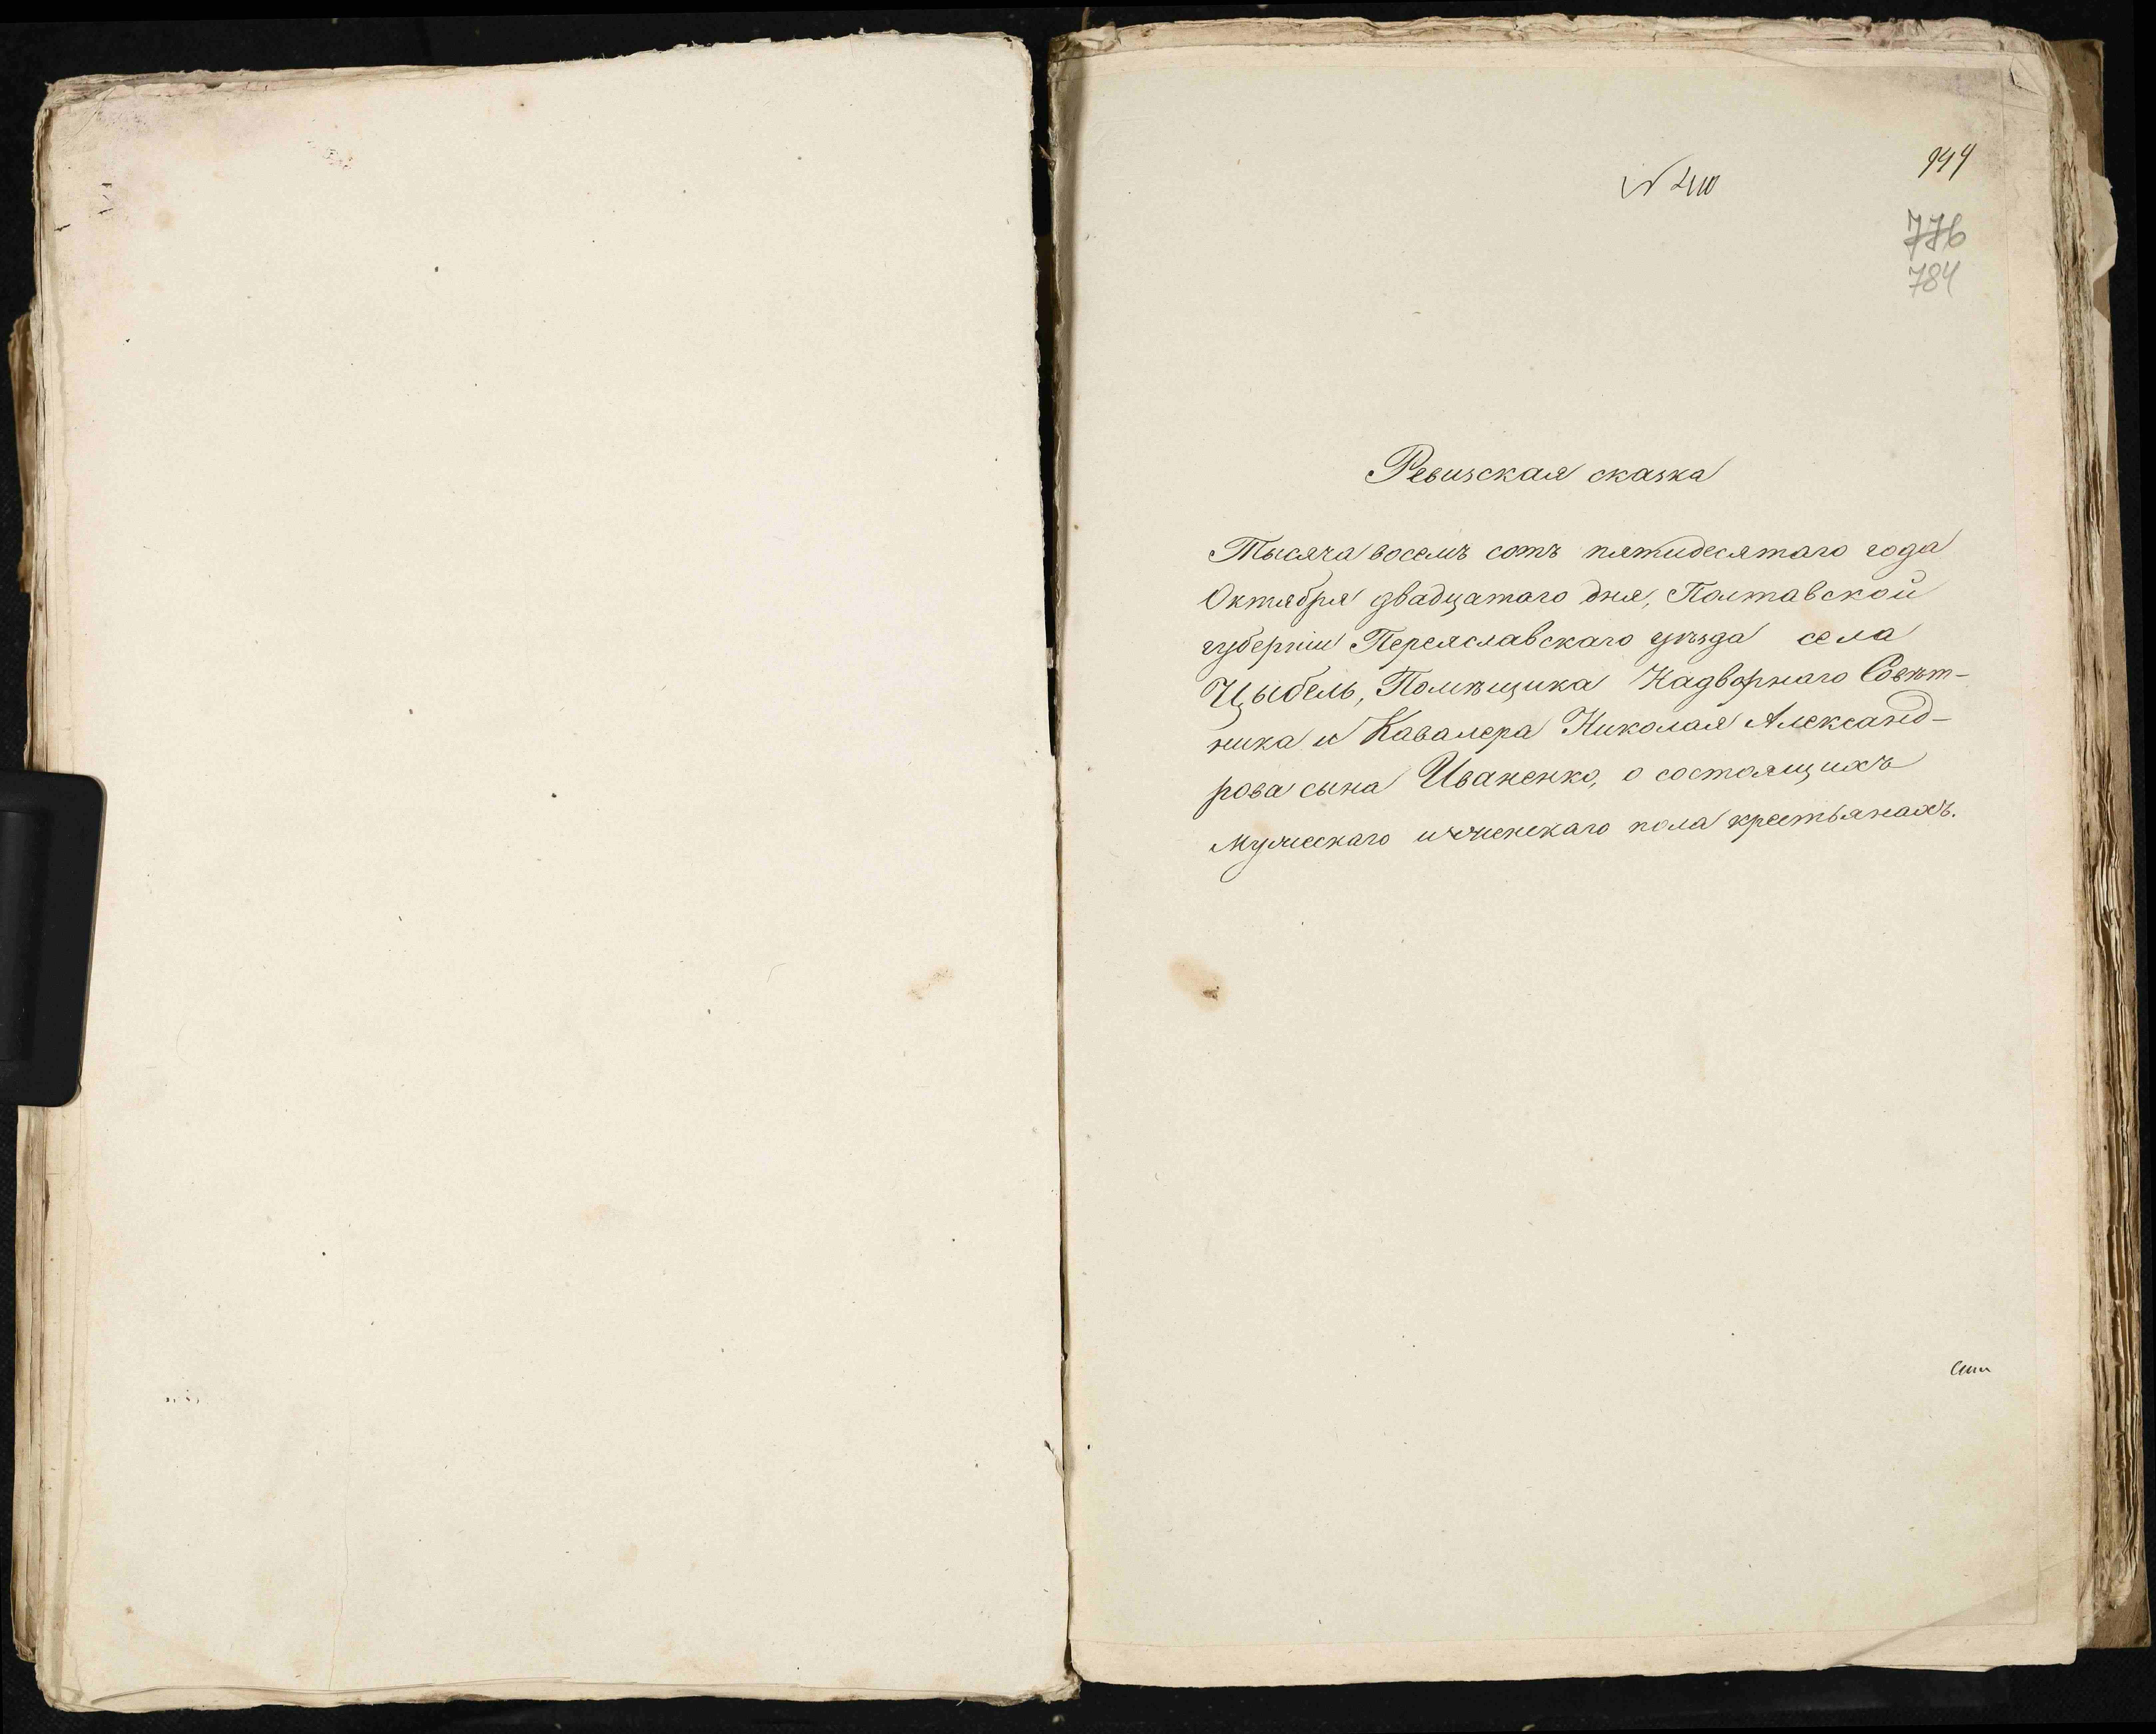 944
№ 210
776
784
Ревизская сказка
Тысяча восемъ сотъ пятидесятаго года
Октября двадцатаго дня, Полтавской
губерніи Переяславскаго уѣзда села
Цыбель, Помѣщика Надворнаго Совѣт-
ника и Кавалера Николая Александ-
рова сына Иваненко, о состоящихъ
Мужескаго и женскаго пола крестьянахъ.